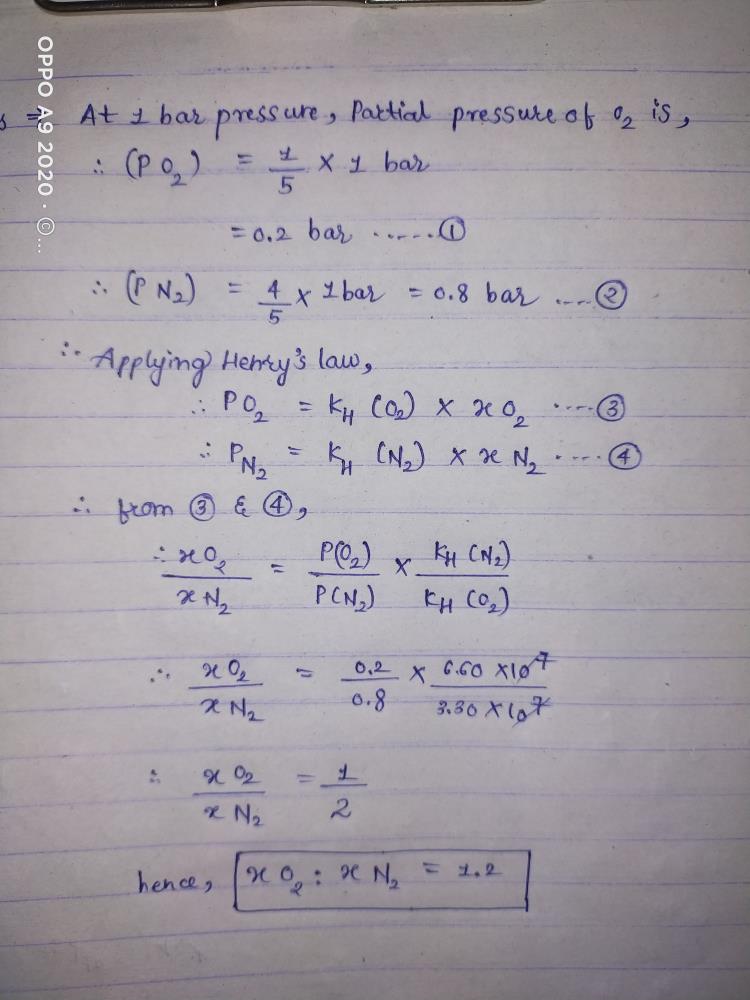 OPPO A9 2020 · ©...
s ⇒ At 1 bar pressure, Partial pressure of O₂ is,
∴ (P O₂) = 1/5 × 1 bar
= 0.2 bar ...... ①
∴ (P N₂) = 4/5 × 1 bar = 0.8 bar .... ②
∴ Applying Henry's law,
∴ P O₂ = K_H (O₂) × x O₂ .... ③
∴ P_N₂ = K_H (N₂) × x N₂ .... ④
∴ from ③ & ④,
∴ x O₂ / x N₂ = P(O₂) / P(N₂) × K_H (N₂) / K_H (O₂)
∴ x O₂ / x N₂ = 0.2 / 0.8 × 6.60 × 10⁷ / 3.30 × 10⁷
∴ x O₂ / x N₂ = 1 / 2
hence, x O₂ : x N₂ = 1.2